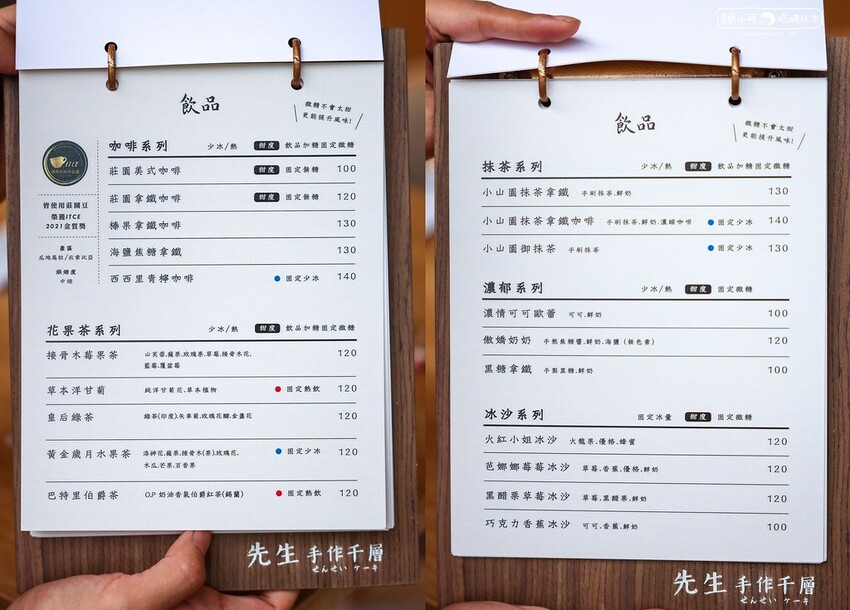 飲品
微糖不會太甜
更能提升風味!
咖啡系列 少冰/熱 甜度 飲品加糖固定微糖
莊園美式咖啡 甜度 固定無糖 100
莊園拿鐵咖啡 甜度 固定無糖 120
榛果拿鐵咖啡 130
海鹽焦糖拿鐵 130
西西里青檸咖啡 固定少冰 140
皆使用莊園豆
榮獲ITCE
2021金質獎
產區
瓜地馬拉/衣索比亞
烘焙度
中焙
花果茶系列 少冰/熱 甜度 飲品加糖固定微糖
接骨木莓果茶 山茱萸.蘋果.玫瑰果.草莓.接骨木花. 120
藍莓.覆盆莓
草本洋甘菊 純洋甘菊花.草本植物 固定熱飲 120
皇后綠茶 綠茶(印度).矢車菊.玫瑰花瓣.金盞花 120
黃金歲月水果茶 洛神花.蘋果.接骨木(果).玫瑰花. 固定少冰 120
木瓜.芒果.百香果
巴特里伯爵茶 O.P 奶油香氣伯爵紅茶(錫蘭) 固定熱飲 120
先生 手作千層
せんせい ケーキ
飲品
微糖不會太甜
更能提升風味!
抹茶系列 少冰/熱 甜度 飲品加糖固定微糖
小山園抹茶拿鐵 手刷抹茶.鮮奶 130
小山園抹茶拿鐵咖啡 手刷抹茶.鮮奶.濃縮咖啡 固定少冰 140
小山園御抹茶 手刷抹茶 固定少冰 130
濃郁系列 少冰/熱 甜度 固定微糖
濃情可可歐蕾 可可.鮮奶 100
傲嬌奶奶 手熬焦糖醬.鮮奶.海鹽 (無色素) 120
黑糖拿鐵 手製黑糖.鮮奶 100
冰沙系列 固定冰量 甜度 固定微糖
火紅小姐冰沙 火龍果.優格.蜂蜜 120
芭娜娜莓莓冰沙 草莓.香蕉.優格.鮮奶 120
黑醋栗草莓冰沙 草莓.黑醋栗.鮮奶 120
巧克力香蕉冰沙 可可.香蕉.鮮奶 100
先生 手作千層
せんせい ケーキ